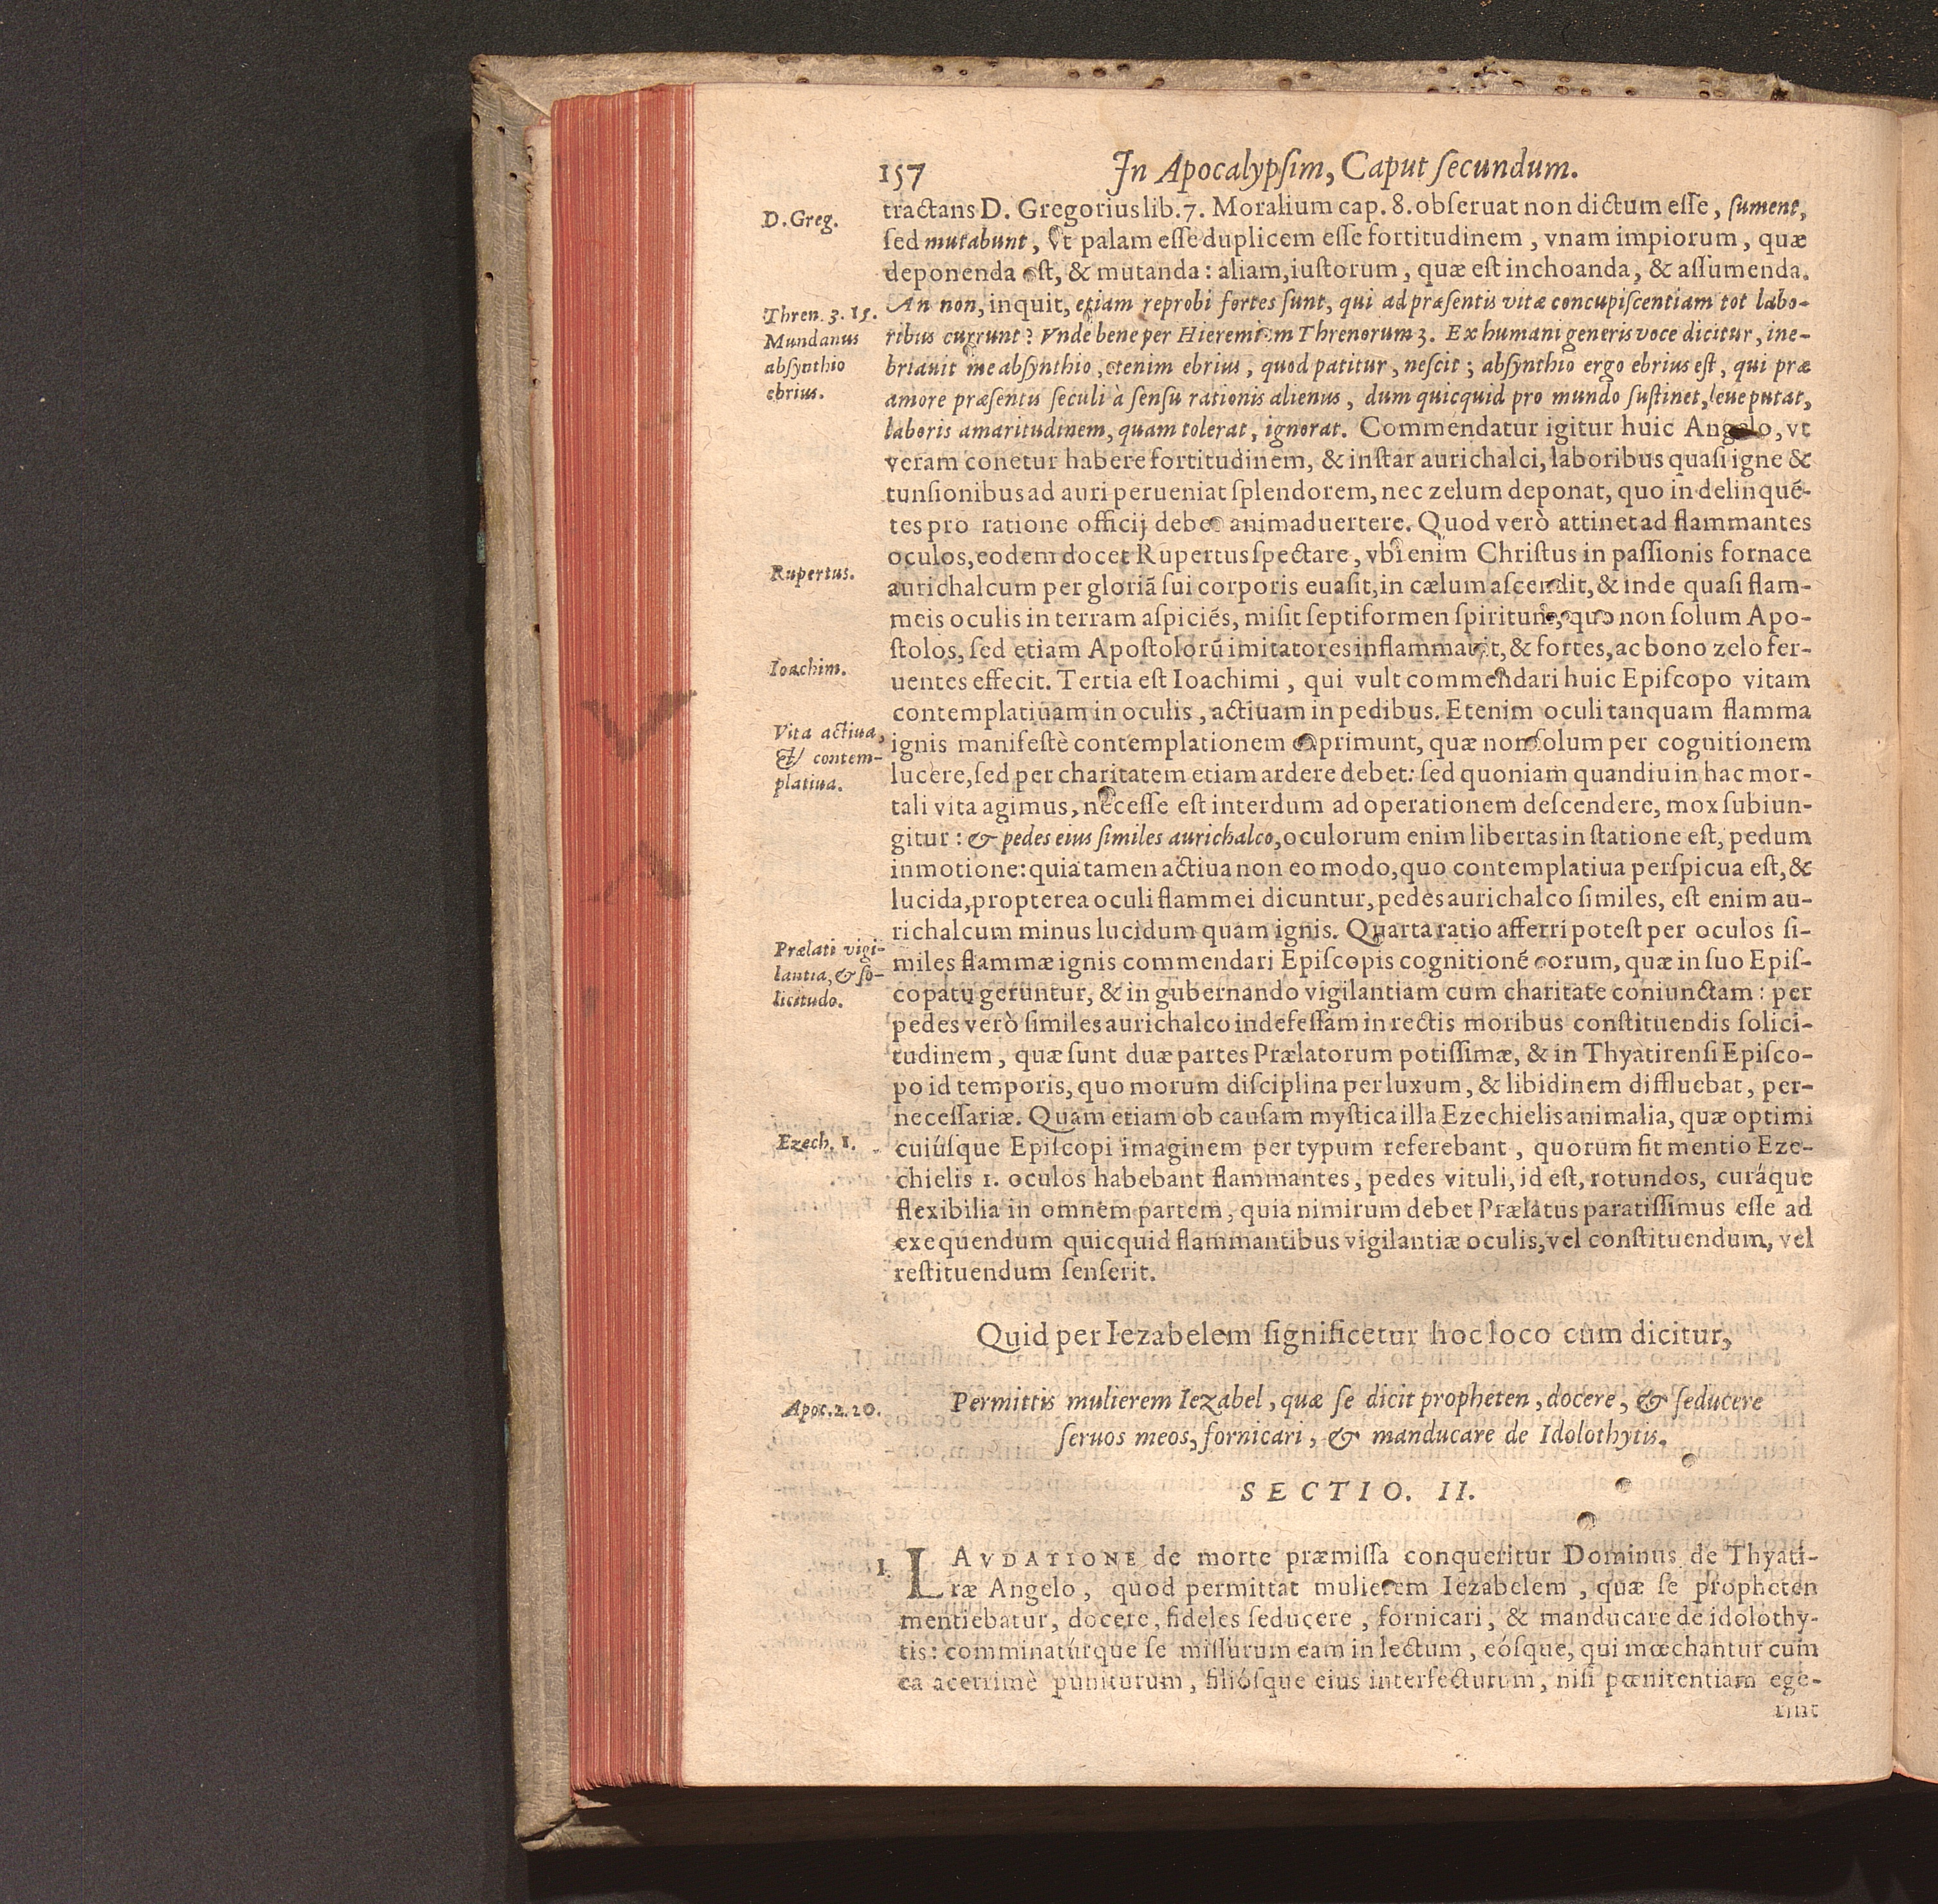 157 In Apocalypſim, Caput ſecundum.
D. Greg.
tractans D. Gregorius lib. 7. Moralium cap. 8. obſeruat non dictum eſſe, ſument,
ſed mutabunt, vt palam eſſe duplicem eſſe fortitudinem, vnam impiorum, quæ
deponenda eſt, & mutanda: aliam, iuſtorum, quæ eſt inchoanda, & aſſumenda.
Thren. 3. 15.
Mundanus
abſynthio
ebrius.
An non, inquit, etiam reprobi fortes ſunt, qui ad præſentis vitæ concupiſcentiam tot labo-
ribus currunt? Vnde bene per Hieremiam Threnorum 3. Ex humani generis voce dicitur, ine-
briauit me abſynthio, etenim ebrius, quod patitur, neſcit; abſynthio ergo ebrius eſt, qui præ
amore præſentis ſeculi à ſenſu rationis alienus, dum quicquid pro mundo ſuſtinet, leue putat,
laboris amaritudinem, quam tolerat, ignorat. Commendatur igitur huic Angelo, vt
veram conetur habere fortitudinem, & inſtar aurichalci, laboribus quaſi igne &
tunſionibus ad auri perueniat ſplendorem, nec zelum deponat, quo in delinqué-
tes pro ratione officij debet animaduertere. Quod verò attinet ad flammantes
Rupertus.
oculos, eodem docet Rupertus ſpectare, vbi enim Chriſtus in paſſionis fornace
aurichalcum per gloriā ſui corporis euaſit, in cælum aſcendit, & inde quaſi flam-
meis oculis in terram aſpiciés, miſit ſeptiformen ſpiritum, quo non ſolum Apo-
ſtolos, ſed etiam Apoſtolorū imitatores inflammauit, & fortes, ac bono zelo fer-
Ioachim.
uentes effecit. Tertia eſt Ioachimi, qui vult commendari huic Epiſcopo vitam
contemplatiuam in oculis, actiuam in pedibus. Etenim oculi tanquam flamma
Vita actiua,
& contem-
platiua.
ignis manifeſtè contemplationem exprimunt, quæ non ſolum per cognitionem
lucere, ſed per charitatem etiam ardere debet: ſed quoniam quandiu in hac mor-
tali vita agimus, neceſſe eſt interdum ad operationem deſcendere, mox ſubiun-
gitur: & pedes eius ſimiles aurichalco, oculorum enim libertas in ſtatione eſt, pedum
in motione: quia tamen actiua non eo modo, quo contemplatiua perſpicua eſt, &
lucida, propterea oculi flammei dicuntur, pedes aurichalco ſimiles, eſt enim au-
richalcum minus lucidum quam ignis. Quarta ratio afferri poteſt per oculos ſi-
Prælati vigi-
lantia, & ſo-
licitudo.
miles flammæ ignis commendari Epiſcopis cognitioné eorum, quæ in ſuo Epiſ-
copatu geruntur, & in gubernando vigilantiam cum charitate coniunctam: per
pedes verò ſimiles aurichalco indefeſſam in rectis moribus conſtituendis ſolici-
tudinem, quæ ſunt duæ partes Prælatorum potiſſimæ, & in Thyatirenſi Epiſco-
po id temporis, quo morum diſciplina per luxum, & libidinem diffluebat, per-
neceſſariæ. Quam etiam ob cauſam myſtica illa Ezechielis animalia, quæ optimi
Ezech. 1.
cuiúſque Epiſcopi imaginem per typum referebant, quorum fit mentio Eze-
chielis 1. oculos habebant flammantes, pedes vituli, id eſt, rotundos, curáque
flexibilia in omnem partem, quia nimirum debet Prælatus paratiſſimus eſſe ad
exequendum quicquid flammantibus vigilantiæ oculis, vel conſtituendum, vel
reſtituendum ſenſerit.
Quid per Iezabelem ſignificetur hoc loco cum dicitur,
Apoc. 2. 20.
Permittis mulierem Iezabel, quæ ſe dicit propheten, docere, & ſeducere
ſeruos meos, fornicari, & manducare de Idolothytis.
SECTIO. II.
1. LAVDATIONE de morte præmiſſa conqueritur Dominus de Thyati-
ræ Angelo, quod permittat mulierem Iezabelem, quæ ſe propheten
mentiebatur, docere, fideles ſeducere, fornicari, & manducare de idolothy-
tis: comminatúrque ſe miſſurum eam in lectum, eóſque, qui mœchantur cum
ea acerrimè puniturum, filióſque eius interfecturum, niſi pœnitentiam ege-
rint